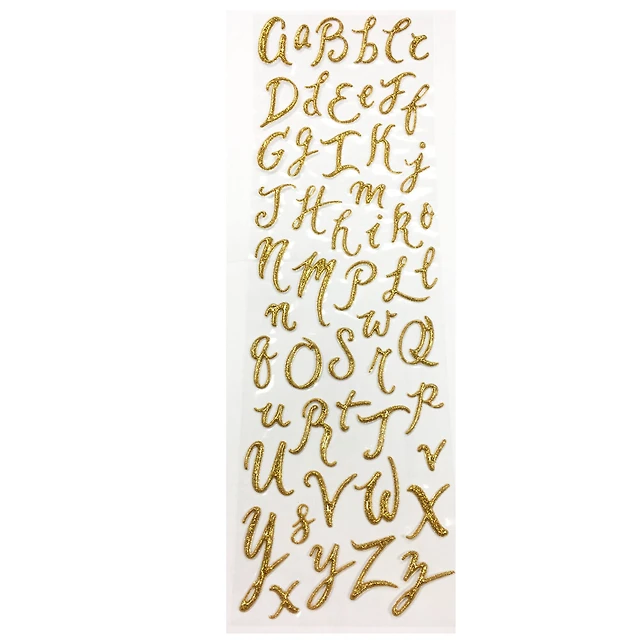 a a B b C c
D d E e F f
G g I K j
J H m h i k o
N M P L l
n w
q O S r Q
u R t T p
U V W v X
Y s y Z z
x